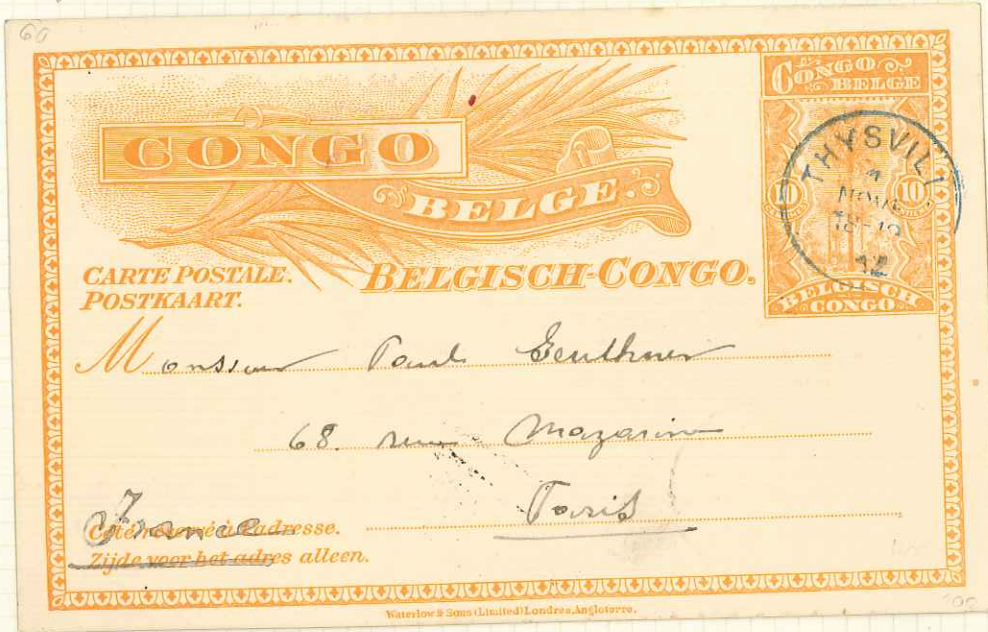 60
CONGO
BELGE.
CONGO
BELGE
THYSVILL
10
10
18-19
12
BELGISCH
CONGO
CARTE POSTALE.
POSTKAART.
BELGISCH-CONGO.
Monsieur Paul Geuthner
68. rue Mazarine
Paris
France
Côté réservé à l'adresse.
Zijde voor het adres alleen.
Waterlow & Sons (Limited) Londres, Angleterre.